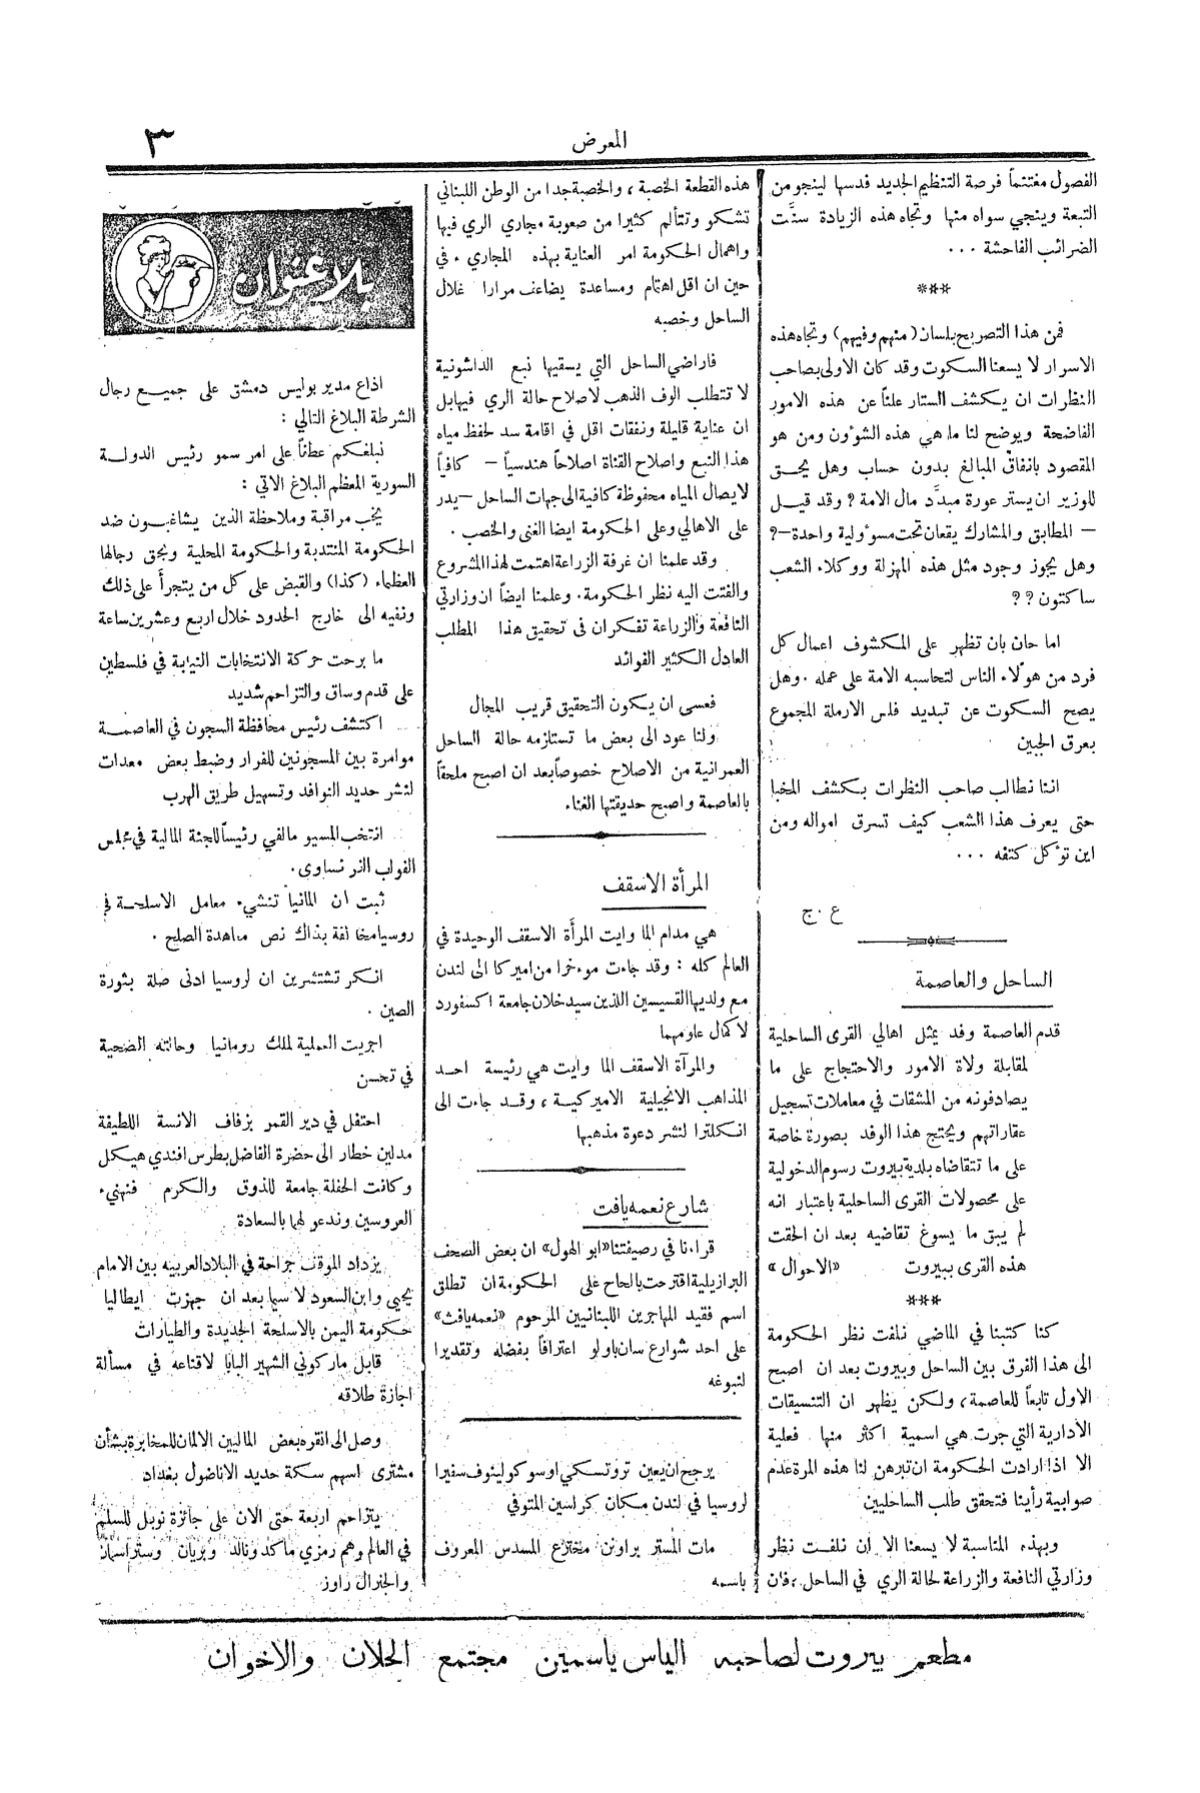 المعرض
٣
الفصول مغتنماً فرصة التنظيم الجديد فدسها لينجو من
التبعة وينجي سواه منها وتجاه هذه الزيادة سنَّت
الضرائب الفاحشة ...
***
فمن هذا التصريح بلسان (منهم وفيهم) وتجاه هذه
الاسرار لا يسعنا السكوت وقد كان الاولى بصاحب
النظرات ان يكشف الستار علناً عن هذه الامور
الفاضحة ويوضح لنا ما هي هذه الشؤون ومن هو
المقصود بانفاق المبالغ بدون حساب وهل يحق
للوزير ان يستر عورة مبدَّد مال الامة ? وقد قيل
— المطابق والمشارك يقعان تحت مسؤولية واحدة —?
وهل يجوز وجود مثل هذه المهزلة ووكلاء الشعب
ساكتون ??
اما حان بان تظهر على المكشوف اعمال كل
فرد من هولاء الناس لتحاسبه الامة على عمله . وهل
يصح السكوت عن تبديد فلس الارملة المجموع
بعرق الجبين
اننا نطالب صاحب النظرات بكشف المخبا
حتى يعرف هذا الشعب كيف تسرق امواله ومن
اين تؤكل كتفه ...
ع . ج
الساحل والعاصمة
قدم العاصمة وفد يمثل اهالي القرى الساحلية
لمقابلة ولاة الامور والاحتجاج على ما
يصادفونه من المشقات في معاملات تسجيل
عقاراتهم ويحتج هذا الوفد بصورة خاصة
على ما تتقاضاه بلدية بيروت رسوم الدخولية
على محصولات القرى الساحلية باعتبار انه
لم يبق ما يسوغ تقاضيه بعد ان الحقت
هذه القرى ببيروت «الاحوال»
***
كنا كتبنا في الماضي نلفت نظر الحكومة
الى هذا الفرق بين الساحل وبيروت بعد ان اصبح
الاول تابعاً للعاصمة، ولكن يظهر ان التنسيقات
الادارية التي جرت هي اسمية اكثر منها فعلية
الا اذا ارادت الحكومة ان تبرهن لنا هذه المرة عدم
صوابية رأينا فتحقق طلب الساحليين
وبهذه المناسبة لا يسعنا الا ان نلفت نظر
وزارتي النافعة والزراعة لحالة الري في الساحل، فان
هذه القطعة الخصبة، والخصبة جدا من الوطن اللبناني
تشكو وتتألم كثيرا من صعوبة مجاري الري فيها
واهمال الحكومة امر العناية بهذه المجاري . في
حين ان اقل اهتمام ومساعدة يضاعف مرارا غلال
الساحل وخصبه
فاراضي الساحل التي يسقيها نبع الداشونية
لا تتطلب الوف الذهب لاصلاح حالة الري فيها بل
ان عناية قليلة ونفقات اقل في اقامة سد لحفظ مياه
هذا النبع واصلاح القناة اصلاحاً هندسياً — كافياً
لايصال المياه محفوظة كافية الى جهات الساحل — يدر
على الاهالي وعلى الحكومة ايضا الغنى والخصب .
وقد علمنا ان غرفة الزراعة اهتمت لهذا المشروع
والفتت اليه نظر الحكومة . وعلمنا ايضاً ان وزارتي
النافعة والزراعة تفكران في تحقيق هذا المطلب
العادل الكثير الفوائد
فعسى ان يكون التحقيق قريب المجال
ولنا عود الى بعض ما تستلزمه حالة الساحل
العمرانية من الاصلاح خصوصاً بعد ان اصبح ملحقاً
بالعاصمة واصبح حديقتها الغناء.
المرأة الاسقف
هي مدام الما وايت المرأة الاسقف الوحيدة في
العالم كله : وقد جاءت موءخرا من اميركا الى لندن
مع ولديها القسيسين اللذين سيدخلان جامعة اكسفورد
لاكمال علومهما
والمرآة الاسقف الما وايت هي رئيسة احد
المذاهب الانجيلية الاميركية، وقد جاءت الى
انكلترا لنشر دعوة مذهبها
شارع نعمه يافت
قراءنا في رصيفتنا «ابو الهول» ان بعض الصحف
البرازيلية اقترحت بالحاح على الحكومة ان تطلق
اسم فقيد المهاجرين اللبنانيين المرحوم «نعمه يافث»
على احد شوارع سان باولو اعترافاً بفضله وتقديرا
لنبوغه
يرجح ان يعين تروتسكي او سوكولينوف سفيرا
لروسيا في لندن مكان كراسين المتوفي
مات المستر براونن مخترع المسدس المعروف
باسمه
بلا عنوان
اذاع مدير بوليس دمشق على جميع رجال
الشرطة البلاغ التالي :
نبلغكم عطفاً على امر سمو رئيس الدولة
السورية المعظم البلاغ الاتي :
يجب مراقبة وملاحظة الذين يشاغبون ضد
الحكومة المنتدبة والحكومة المحلية وبحق رجالها
العظماء (كذا) والقبض على كل من يتجرأ على ذلك
ونفيه الى خارج الحدود خلال اربع وعشرين ساعة
ما برحت حركة الانتخابات النيابة في فلسطين
على قدم وساق والتزاحم شديد
اكتشف رئيس محافظة السجون في العاصمة
موامرة بين المسجونين للفرار وضبط بعض معدات
لنشر حديد النوافد وتسهيل طريق الهرب
انتخب المسيو مالفي رئيساً للجنة المالية في مجلس
النواب الفرنساوي.
ثبت ان المانيا تنشيء معامل الاسلحة في
روسيا مخالفة بذاك نص معاهدة الصلح .
انكر تشتشرين ان لروسيا ادنى صلة بثورة
الصين .
اجريت العملية لملك رومانيا وحالته الصحية
في تحسن
احتفل في دير القمر بزفاف الانسة اللطيفة
مدلين خطار الى حضرة الفاضل بطرس افندي هيكل
وكانت الحفلة جامعة للذوق والكرم فنهنيء
العروسين وندعو لهما بالسعادة
يزداد الموقف حراجة في البلاد العربيه بين الامام
يحيى وابن السعود لا سيما بعد ان جهزت ايطاليا
حكومة اليمن بالاسلحة الجديدة والطيارات
قابل ماركوني الشهير البابا لاقناعه في مسألة
اجازة طلاقه
وصل الى انقره بعض الماليين الالمان للمخابرة بشأن
مشترى اسهم سكة حديد الاناضول بغداد
يتزاحم اربعة حتى الان على جائزة نوبل للسلم
في العالم وهم رمزي ماكدونالد وبريان وستراسمان
والجنرال داوز
مطعم بيروت لصاحبه الياس ياسمين مجتمع الخلان والاخوان